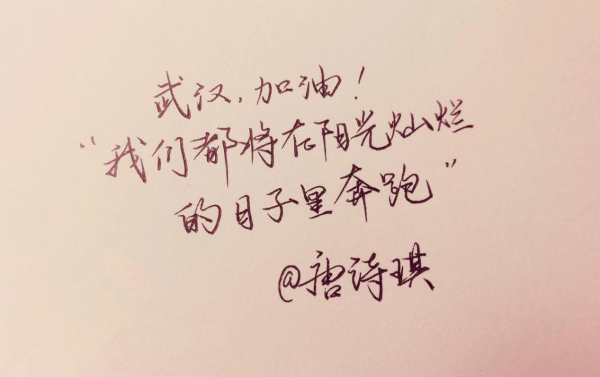 武汉,加油!
“我们都将在阳光灿烂
的日子里奔跑”
@唐诗琪